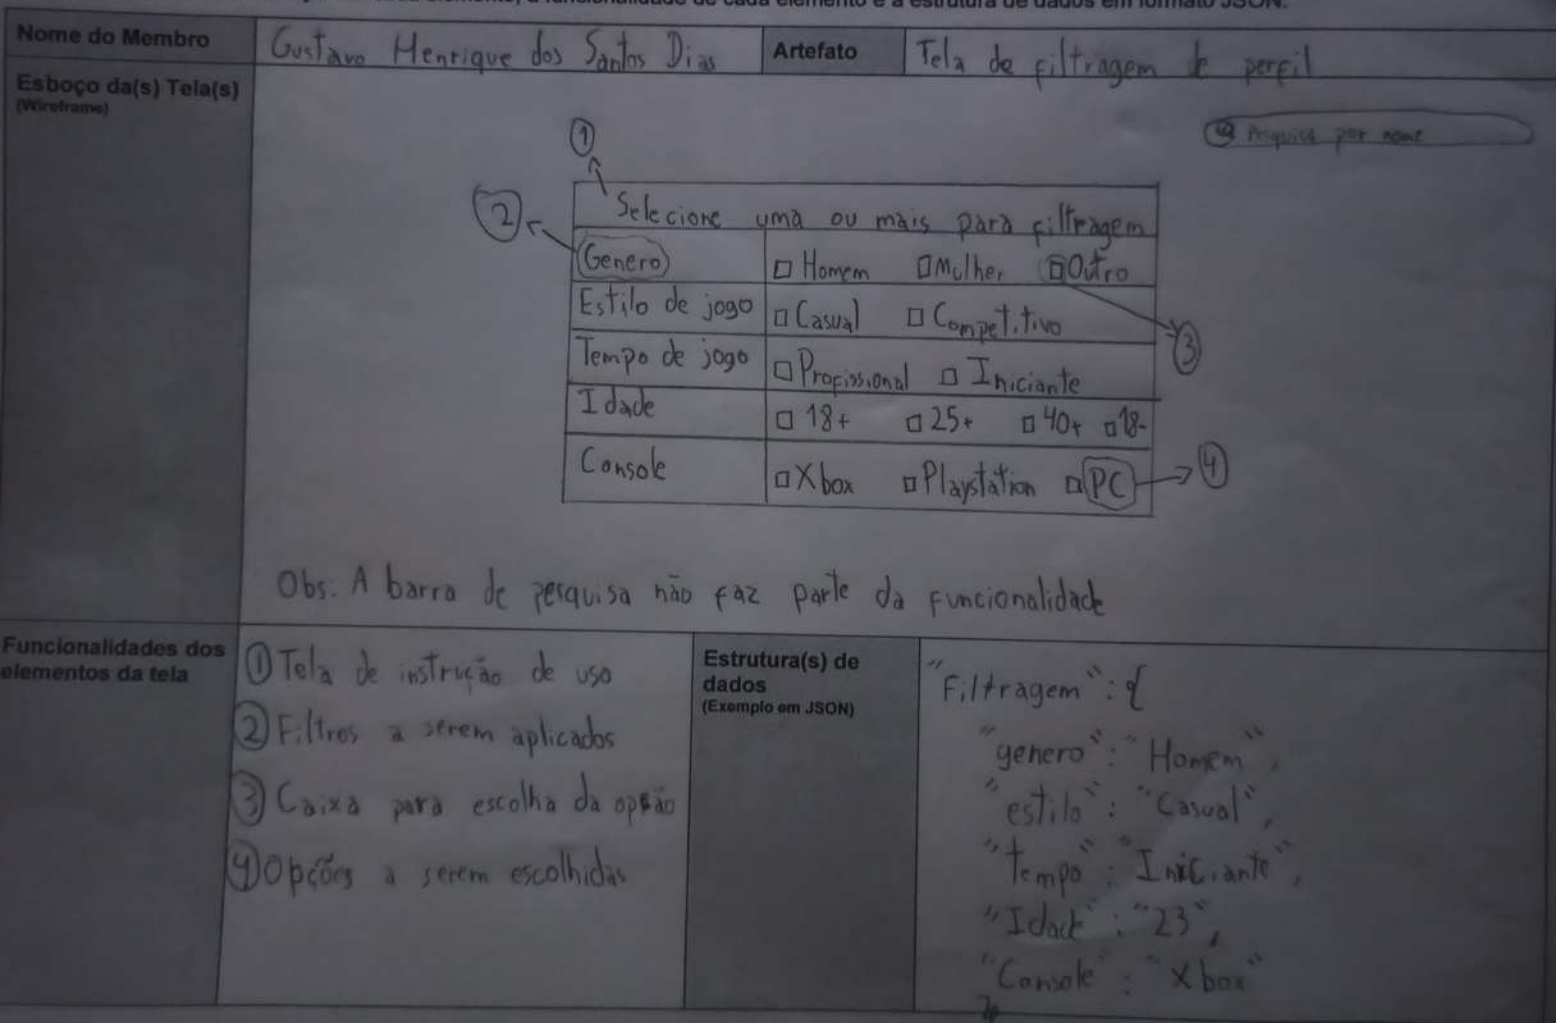 cada elemento, a funcionalidade de cada elemento e a estrutura de dados em formato JSON.
Nome do Membro
Gustavo Henrique dos Santos Dias
Artefato
Tela de filtragem de perfil
Esboço da(s) Tela(s)
(Wireframe)
Pesquisa por nome
1
2
Selecione uma ou mais para filtragem
Genero □ Homem □ Mulher □ Outro
Estilo de jogo □ Casual □ Competitivo
3
Tempo de jogo □ Profissional □ Iniciante
Idade □ 18+ □ 25+ □ 40+ □ 18-
Console □ Xbox □ Playstation □ PC
4
Obs: A barra de pesquisa não faz parte da funcionalidade
Funcionalidades dos
elementos da tela
1 Tela de instrução de uso
2 Filtros a serem aplicados
3 Caixa para escolha da opção
4 Opções a serem escolhidas
Estrutura(s) de
dados
(Exemplo em JSON)
"Filtragem": {
"genero": "Homem",
"estilo": "Casual",
"tempo": "Iniciante",
"Idade": "23",
"Console": "Xbox"
}